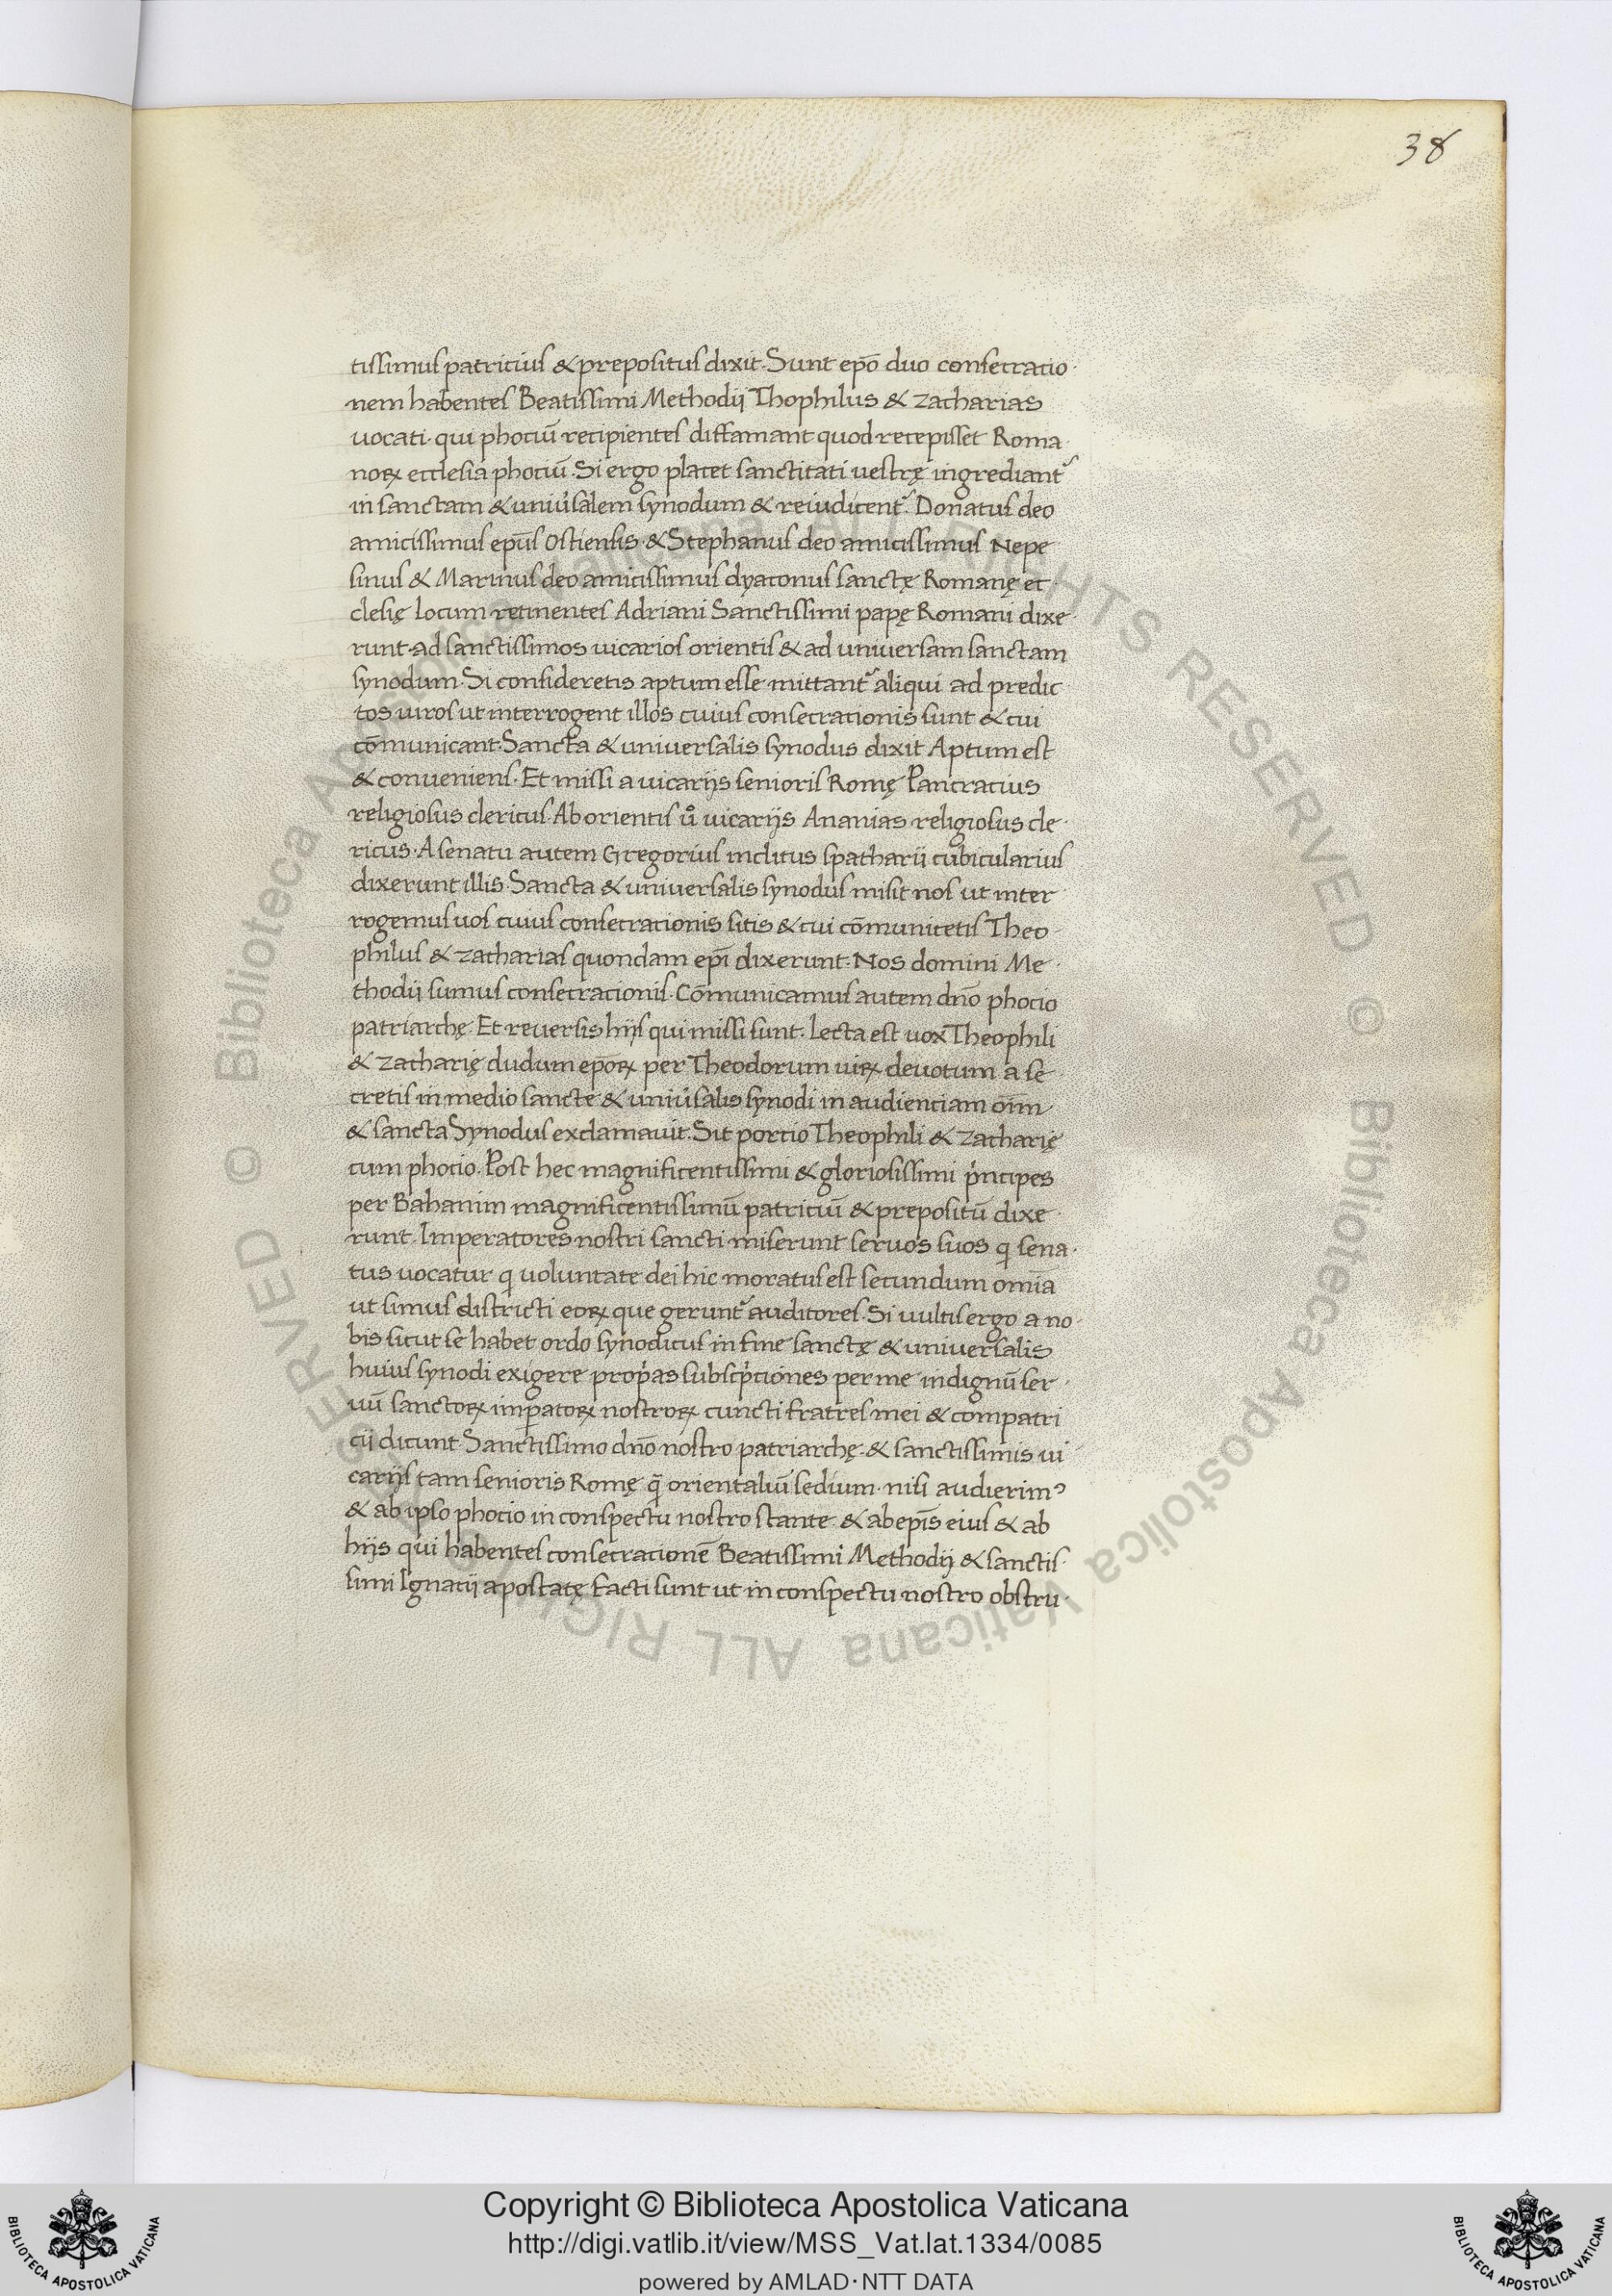 38
tissimus patricius & prepositus dixit. Sunt epō duo consecratio
nem habentes Beatissimi Methodij Thophilus & zacharias
uocati. qui phociū recipientes diffamant quod recepisset Roma
noꝝ ecclesia phociū. Si ergo placet sanctitati uestrę ingrediant᷑
in sanctam & uniūsalem synodum & reiudicent᷑. Donatus deo
amicissimus ep̄us Ostiensis. & Stephanus deo amicissimus Nepe
sinus & Marinus deo amicissimus dyaconus sanctę Romanę ec
clesię locum retinentes Adriani Sanctissimi papę Romani dixe
runt. ad sanctissimos uicarios orientis & ad universam sanctam
synodum. Si consideretis aptum esse mittant᷑ aliqui ad predic
tos uiros ut interrogent illos cuius consecrationis sunt & cui
cōmunicant. Sancta & universalis synodus dixit Aptum est
& conueniens. Et missi a uicarijs senioris Romę Pancratius
religiosus clericus. Ab orientis uͦ uicarijs Ananias religiosus cle
ricus. A senatu autem Gregorius inclitus spatharij cubicularius
dixerunt illis. Sancta & universalis synodus misit nos ut inter
rogemus uos cuius consecrationis sitis & cui cōmunicetis Theo
philus & zacharias quondam ep̄i dixerunt. Nos domini Me
thodij sumus consecracionis. Cōmunicamus autem dn̄o phocio
patriarchę. Et reuersis hijs qui missi sunt. Lecta est uox Theophili
& zacharię dudum ep̄oꝝ per Theodorum uiꝝ deuotum a se
cretis in medio sancte & uniūsalis synodi in audienciam oīm
& sancta Synodus exclamauit. Sit portio Theophili & zacharię
cum phocio. Post hec magnificentissimi & gloriosissimi pͥncipes
per Bahanim magnificentissimū patriciū & prepositū dixe
runt. Imperatores nostri sancti miserunt seruos suos q sena
tus uocatur q uoluntate dei hic moratus est secundum omīa
ut simus districti eoꝝ que gerunt᷑ auditores. Si uultis ergo a no
bis sicut se habet ordo synodicus in fine sanctę & universalis
huius synodi exigere propͥas subscpͥciones per me indignū ser
uū sanctoꝝ imꝑatoꝝ nostroꝝ cuncti fratres mei & compatri
cij dicunt. Sanctissimo dn̄o nostro patriarchę. & sanctissimis ui
carijs tam senioris Romę q̄ orientaliū sedium. nisi audierimꝰ
& ab ipso phocio in conspectu nostro stante. & ab ep̄is eius & ab
hijs qui habentes consecracionē Beatissimi Methodij & sanctis
simi Ignatij apostatę facti sunt ut in conspectu nostro obstru
© Biblioteca Apostolica Vaticana ALL RIGHTS RESERVED
© Biblioteca Apostolica Vaticana ALL RIGHTS RESERVED
BIBLIOTECA APOSTOLICA VATICANA
Copyright © Biblioteca Apostolica Vaticana
http://digi.vatlib.it/view/MSS_Vat.lat.1334/0085
powered by AMLAD·NTT DATA
BIBLIOTECA APOSTOLICA VATICANA